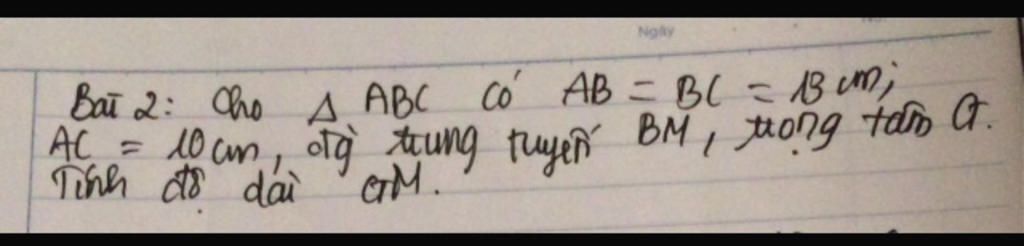 Ngày
Bài 2: Cho Δ ABC có AB = BC = 13 cm;
AC = 10 cm, đg trung tuyến BM, trọng tâm G.
Tính độ dài GM.